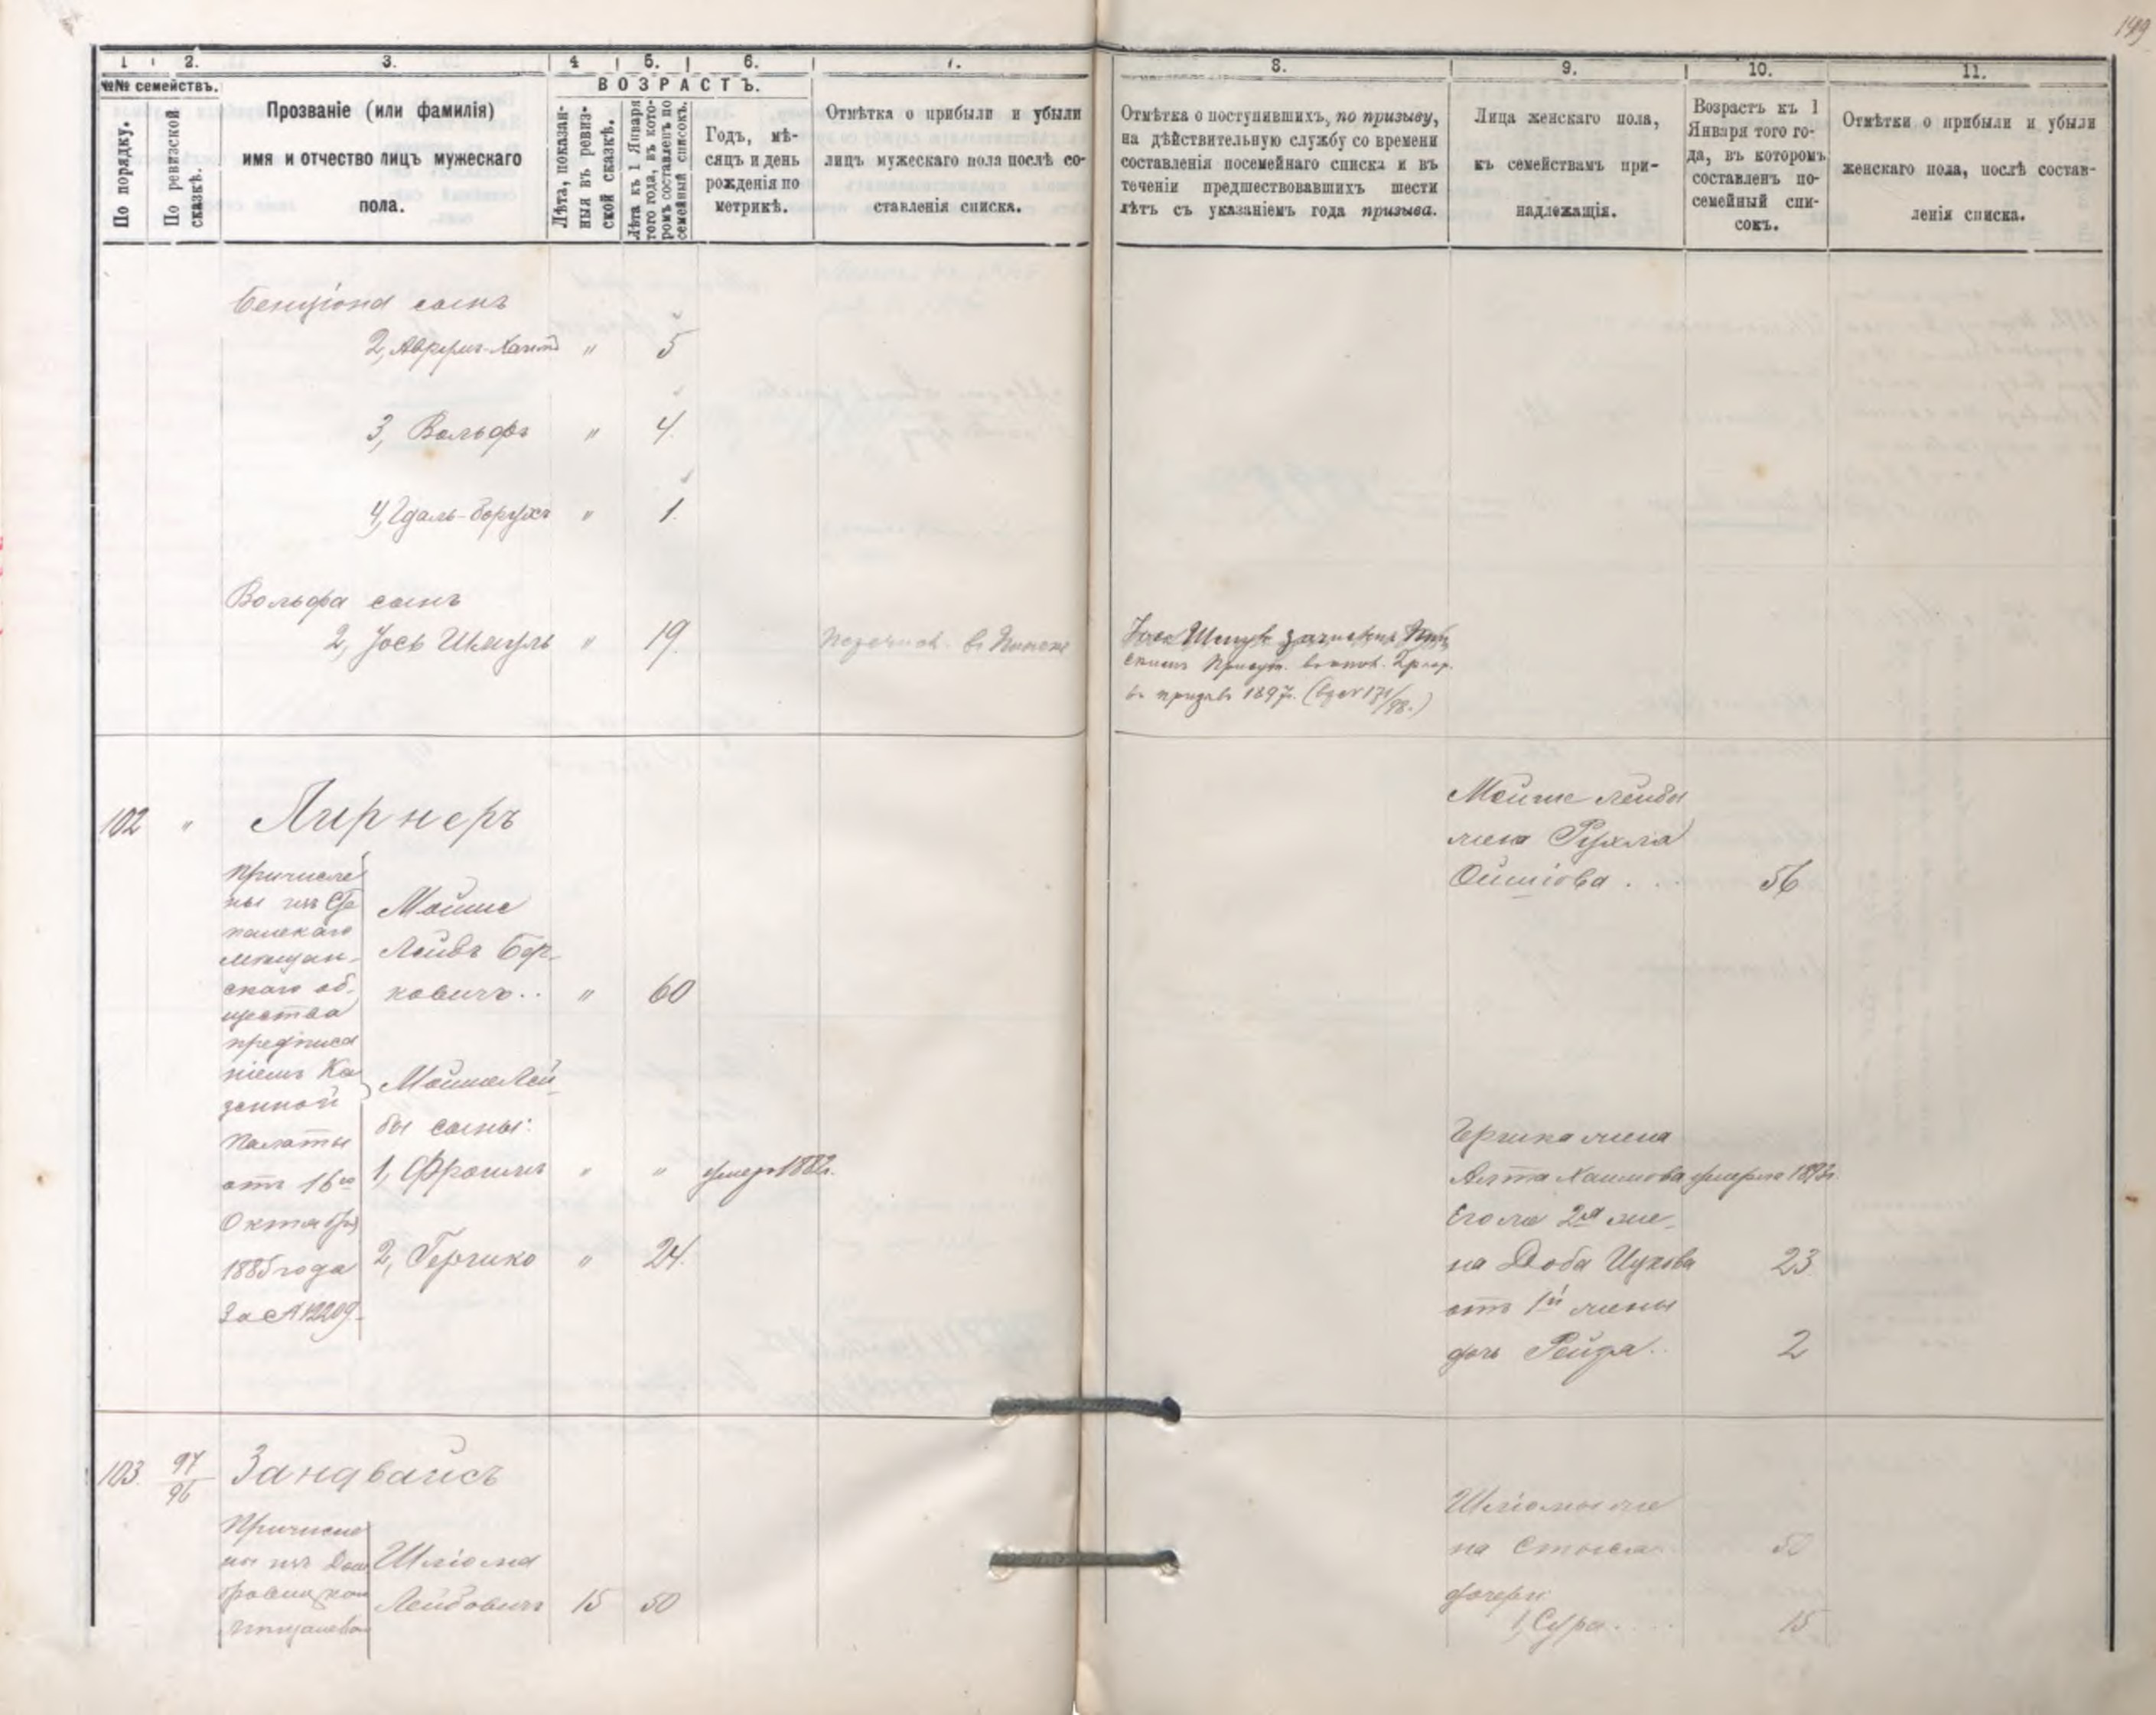 149
1
2.
3.
4
5.
6.
7.
8.
9.
10.
11.
№№ семействъ.
По порядку.
По ревизской
сказкѣ.
Прозваніе (или фамилія)
имя и отчество лицъ мужескаго
пола.
ВОЗРАСТЪ.
Лѣта, показан-
ныя въ ревиз-
ской сказкѣ.
Лѣта къ 1 Января
того года, въ кото-
ромъ составленъ по
семейный списокъ.
Годъ, мѣ-
сяцъ и день
рожденія по
метрикѣ.
Отмѣтка о прибыли и убыли
лицъ мужескаго пола послѣ со-
ставленія списка.
Отмѣтка о поступившихъ, по призыву,
на дѣйствительную службу со времени
составленія посемейнаго списка и въ
теченіи предшествовавшихъ шести
лѣтъ съ указаніемъ года призыва.
Лица женскаго пола,
къ семействамъ при-
надлежащія.
Возрастъ къ 1
Января того го-
да, въ которомъ
составленъ по-
семейный спи-
сокъ.
Отмѣтки о прибыли и убыли
женскаго пола, послѣ состав-
ленія списка.
Бенціона сынъ
2, " 5
3, Вольфъ " 4.
4, Гдаль-борухъ " 1.
Вольфа сынъ
2, Іось Шмуль " 19. въ Пинске
Іось Шмуль зачисленъ
въ призывъ 1897г.
102 " Лирнеръ
Причисле
ны изъ Сте
панскаго
мещан-
скаго об-
щества
предписа
ніемъ Ка
зенной
Палаты
отъ 16го
Октября
1885 года
За №12209.
Мойше
Лейбъ Бер-
ковичъ.. " 60
Мойше Лей
бы сыны:
1, Фроимъ " " умеръ 1882г.
2, Гершко " 24.
Мойше Лейбы
жена Рухля
Ойшіова . . 56
Гершка жена
Алта Хаимова умерла
Его же 2я же-
на Доба Ицкова 23
отъ 1й жены
дочь Рейза.. 2
103. 97/96 Зандвайсъ
Причисле
ны изъ Дом
бровицкой
Шліома
Лейбовичъ 15 50
Шліомы же
на Стыся 50
дочери:
1, Сура.... 15